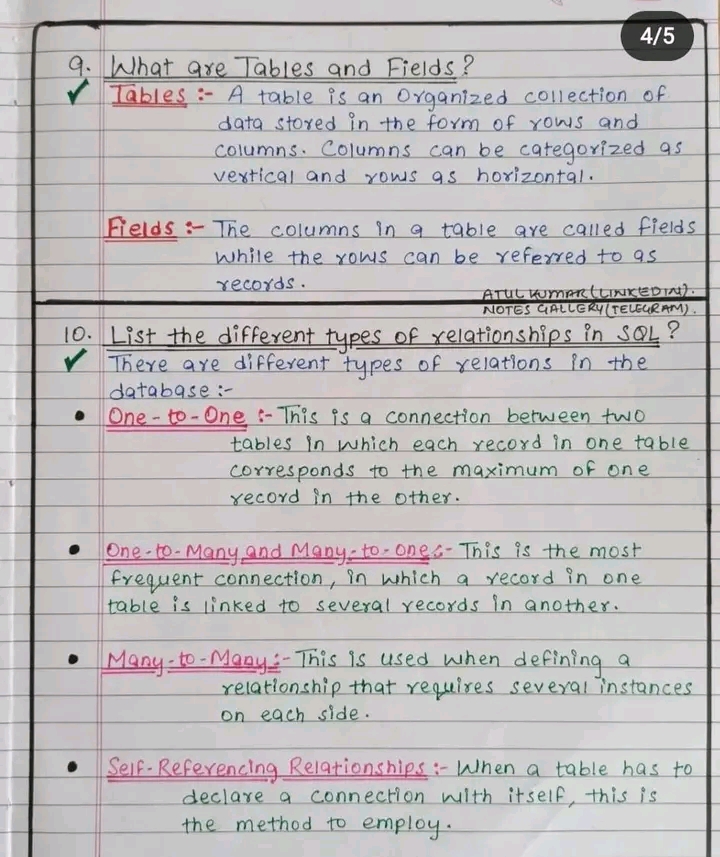 4/5
9. What are Tables and Fields?
Tables :- A table is an Organized collection of
data stored in the form of rows and
columns. Columns can be categorized as
vertical and rows as horizontal.
Fields :- The columns in a table are called fields
while the rows can be referred to as
records.
ATUL KUMAR (LINKEDIN).
NOTES GALLERY (TELEGRAM).
10. List the different types of relationships in SQL?
There are different types of relations in the
database :-
• One-to-One :- This is a connection between two
tables in which each record in one table
corresponds to the maximum of one
record in the other.
• One-to-Many and Many-to-One :- This is the most
frequent connection, in which a record in one
table is linked to several records in another.
• Many-to-Many :- This is used when defining a
relationship that requires several instances
on each side.
• Self-Referencing Relationships :- When a table has to
declare a connection with itself, this is
the method to employ.